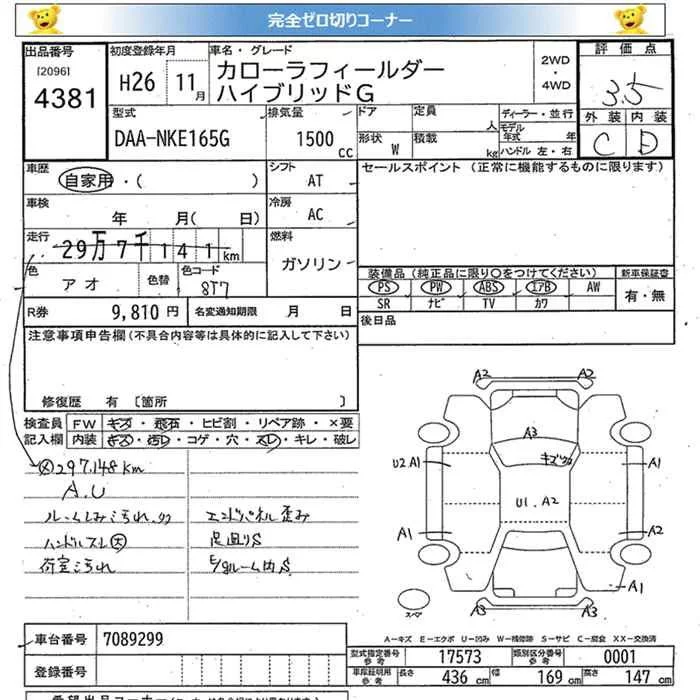 完全ゼロ切りコーナー
出品番号
[2096]
4381
初度登録年月
H26 11月
車名・グレード
カローラフィールダー
ハイブリッドG
2WD
・
4WD
評価点
3.5
外装 内装
C D
型式
DAA-NKE165G
排気量
1500 cc
ドア
定員
人
形状
W
積載
kg
ディーラー・並行
モデル年式 年
ハンドル 左・右
車歴
自家用・( )
シフト
AT
車検
年 月( 日)
冷房
AC
走行
29万7千141km
燃料
ガソリン
色
アオ
色替
色コード
8T7
R券 9,810円
名変通知期限 月 日
セールスポイント (正常に機能するものに限ります)
装備品(純正品に限り○をつけてください)
PS PW ABS エアB AW
SR ナビ TV カワ
新車保証書
有・無
後日品
注意事項申告欄(不具合内容等は具体的に記入して下さい)
修復歴 有〔箇所 〕
検査員記入欄
FW キズ・飛石・ヒビ割・リペア跡・×要
内装 キズ・汚レ・コゲ・穴・スレ・キレ・破レ
297,148km
A.U
ハンドルスレ大
荷室汚れ
エンドパネル歪み
足廻りS
E/gルーム内S
A2 A2
A3
キズワレ
U2 A1
A1
U1.A2
A1
A2
A1
A3 A3
スペア
A-キズ E-エクボ U-凹み W-補修跡 S-サビ C-腐食 XX-交換済
車台番号 7089299
登録番号
型式指定番号 参考 17573
類別区分番号 参考 0001
車庫証明用 参考 長さ 436cm 幅 169cm 高さ 147cm